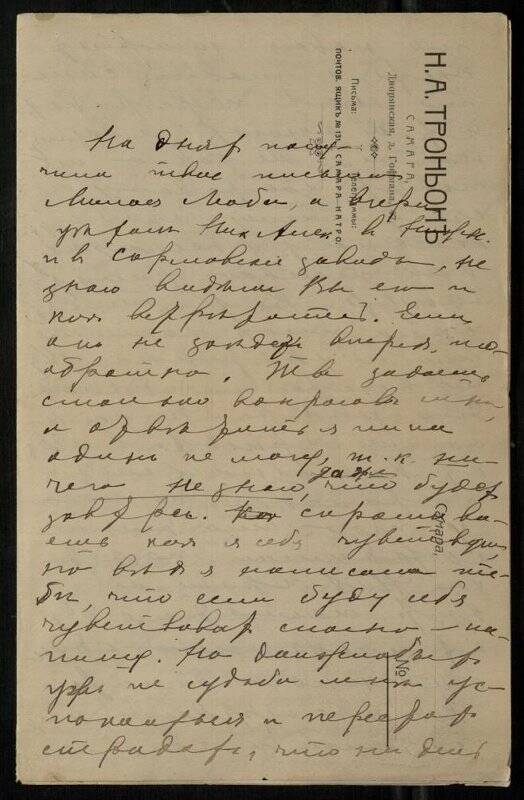 Н. А. ТРОНЬОНЪ
САМАРА,
Дворянская, д.
Письма:
ПОЧТОВ. ЯЩИКЪ № 131 САМАРА-НАТРО.
На дняхъ полу-
чила твое письмо,
Милая Люба, а вчера
уѣхалъ Ник Алек въ
и въ Сормовскій заводъ, не
знаю видѣли Вы его и
какъ встрѣтитесь. Если
онъ не заѣдетъ впередъ, то
обратно. Ты задаешь
столько вопросовъ мнѣ,
а отвѣтить я ни на
одинъ не могу, т. к. ни-
чего не знаю, даже что будетъ
завтра. спрашива-
ешь какъ я себя чувствую,
но вѣдь я написала те-
бѣ, что если буду себя
чувствовать сносно — на-
пишу. Но
ужъ не судьба мнѣ ус-
покоиться и перестать
страдать, что ни день
Самара,
№